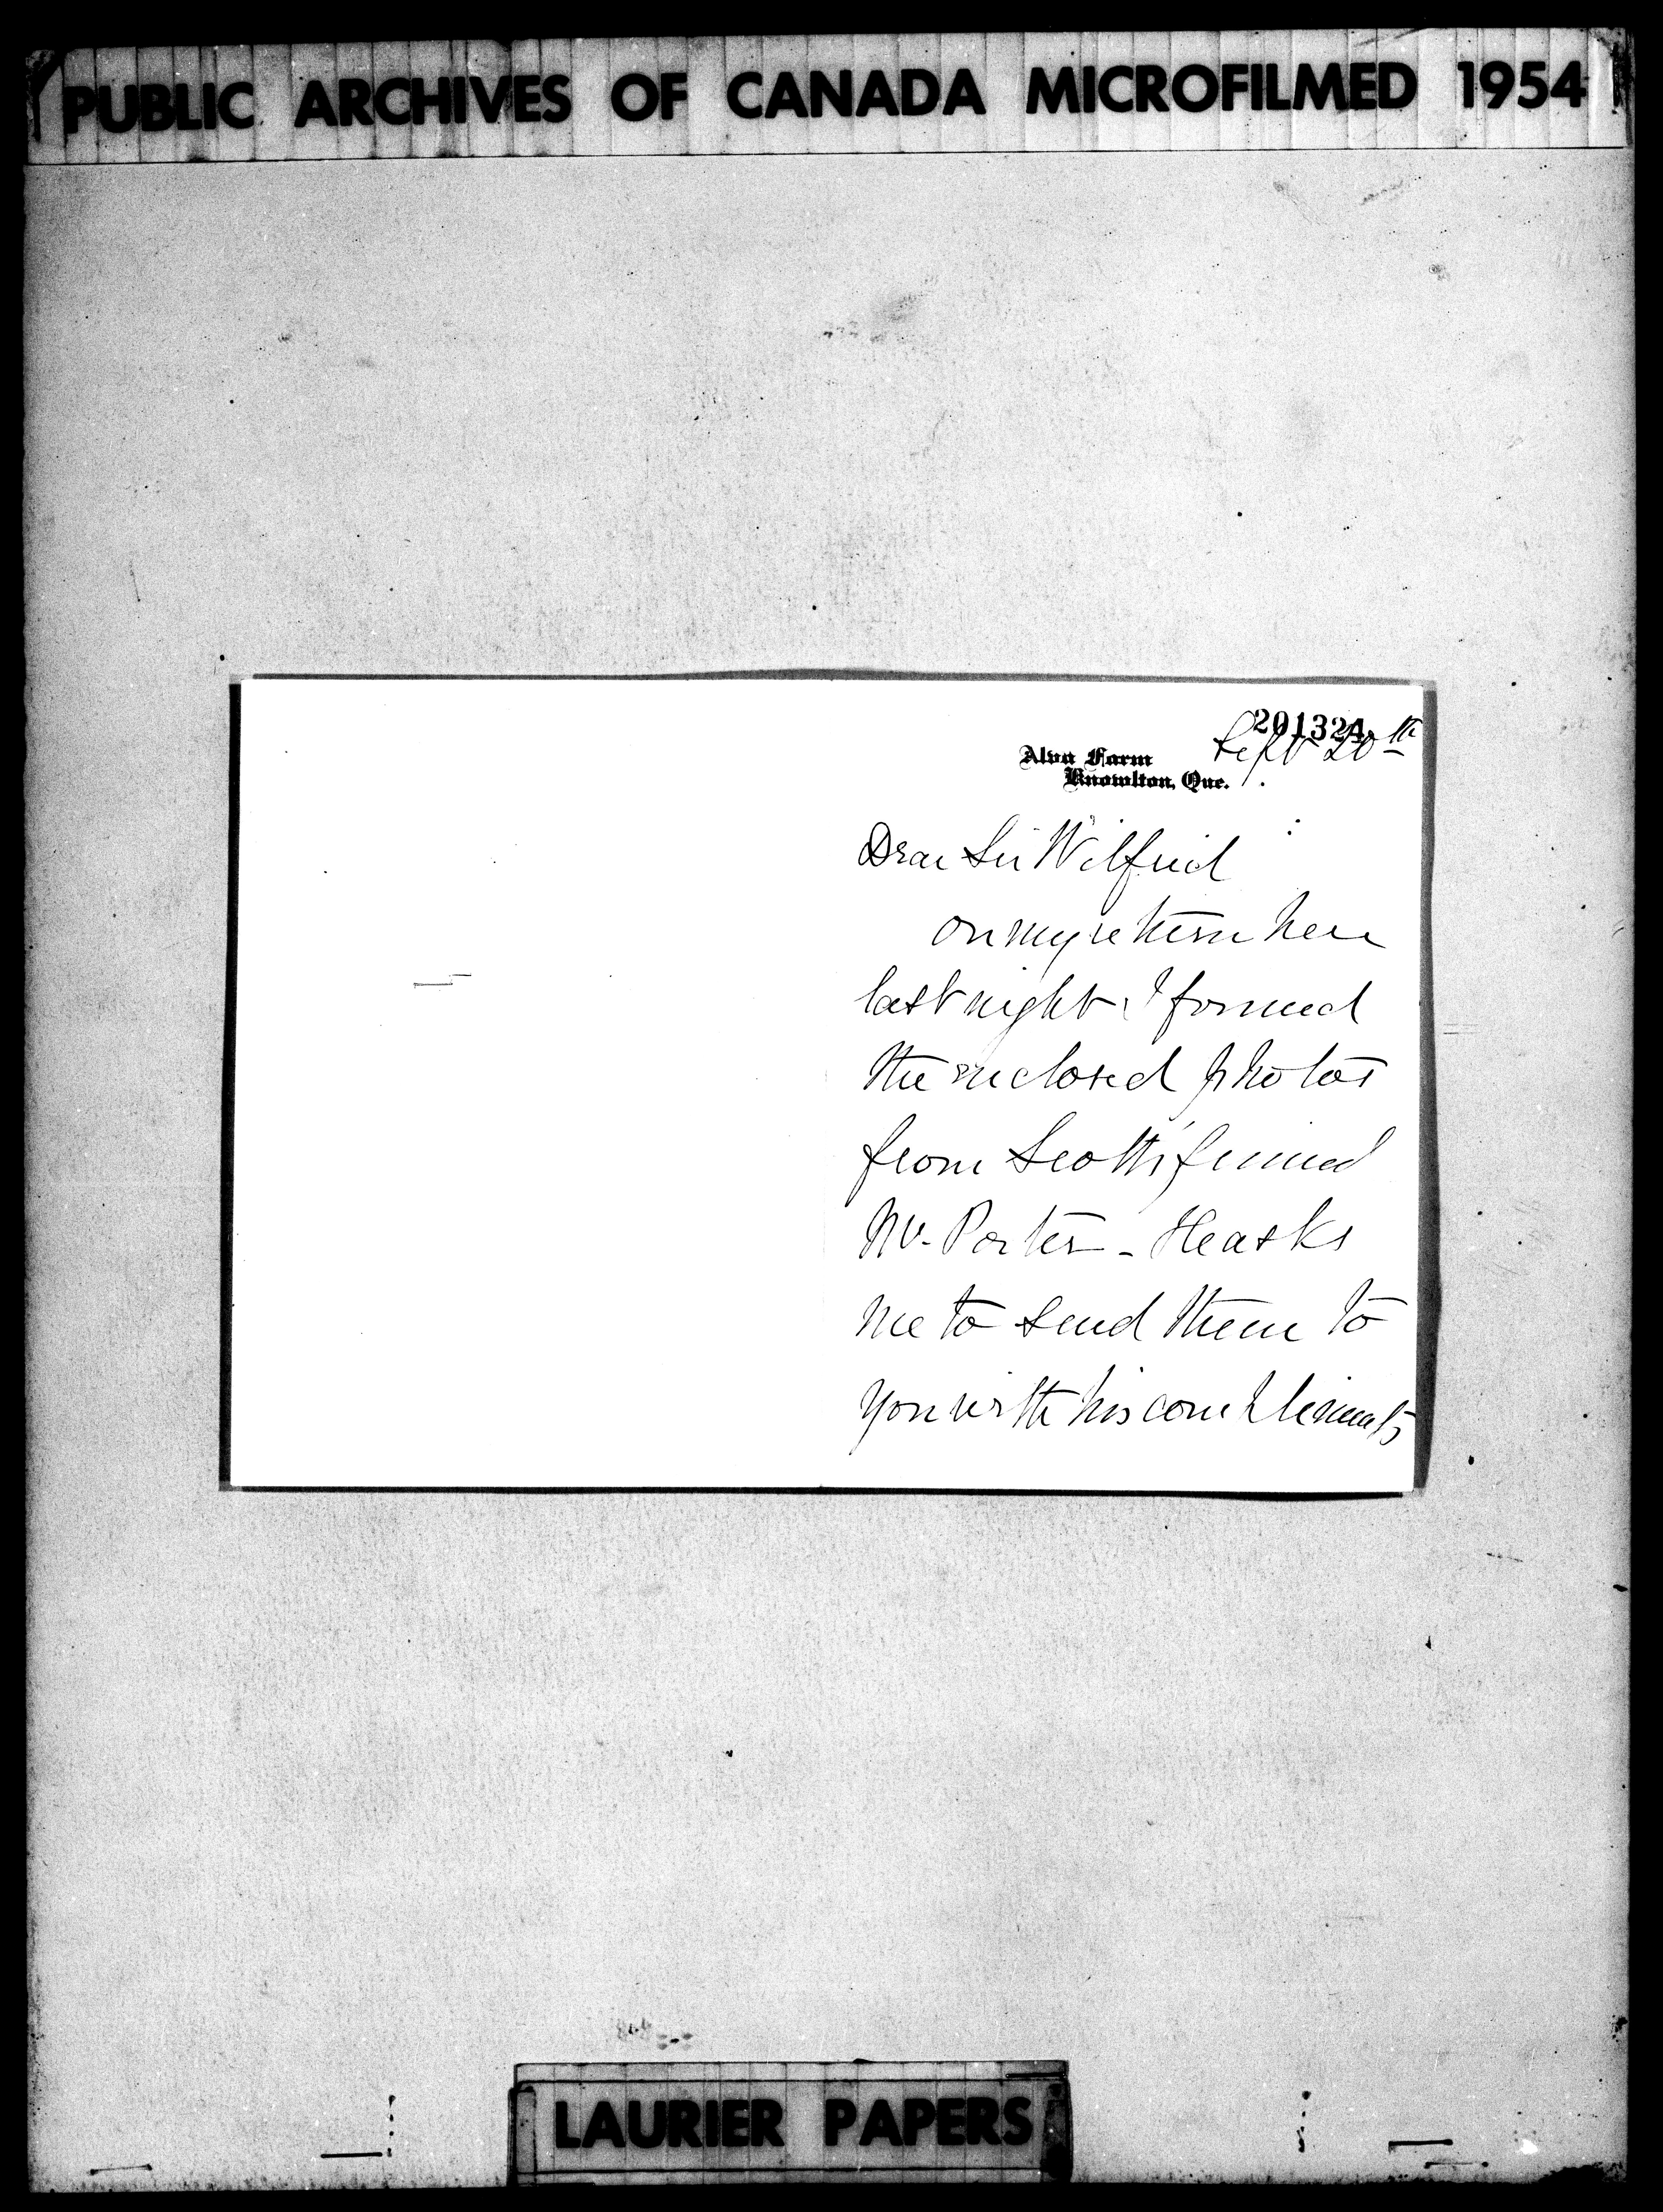 PUBLIC ARCHIVES OF CANADA MICROFILMED 1954
201324
Sept 20th
Alva Farm
Knowlton, Que.
Dear Sir Wilfrid
On my return here
last night I found
the enclosed photos
from Scott's friend
Mr. Porter - He asks
me to send them to
you with his compliments
LAURIER PAPERS